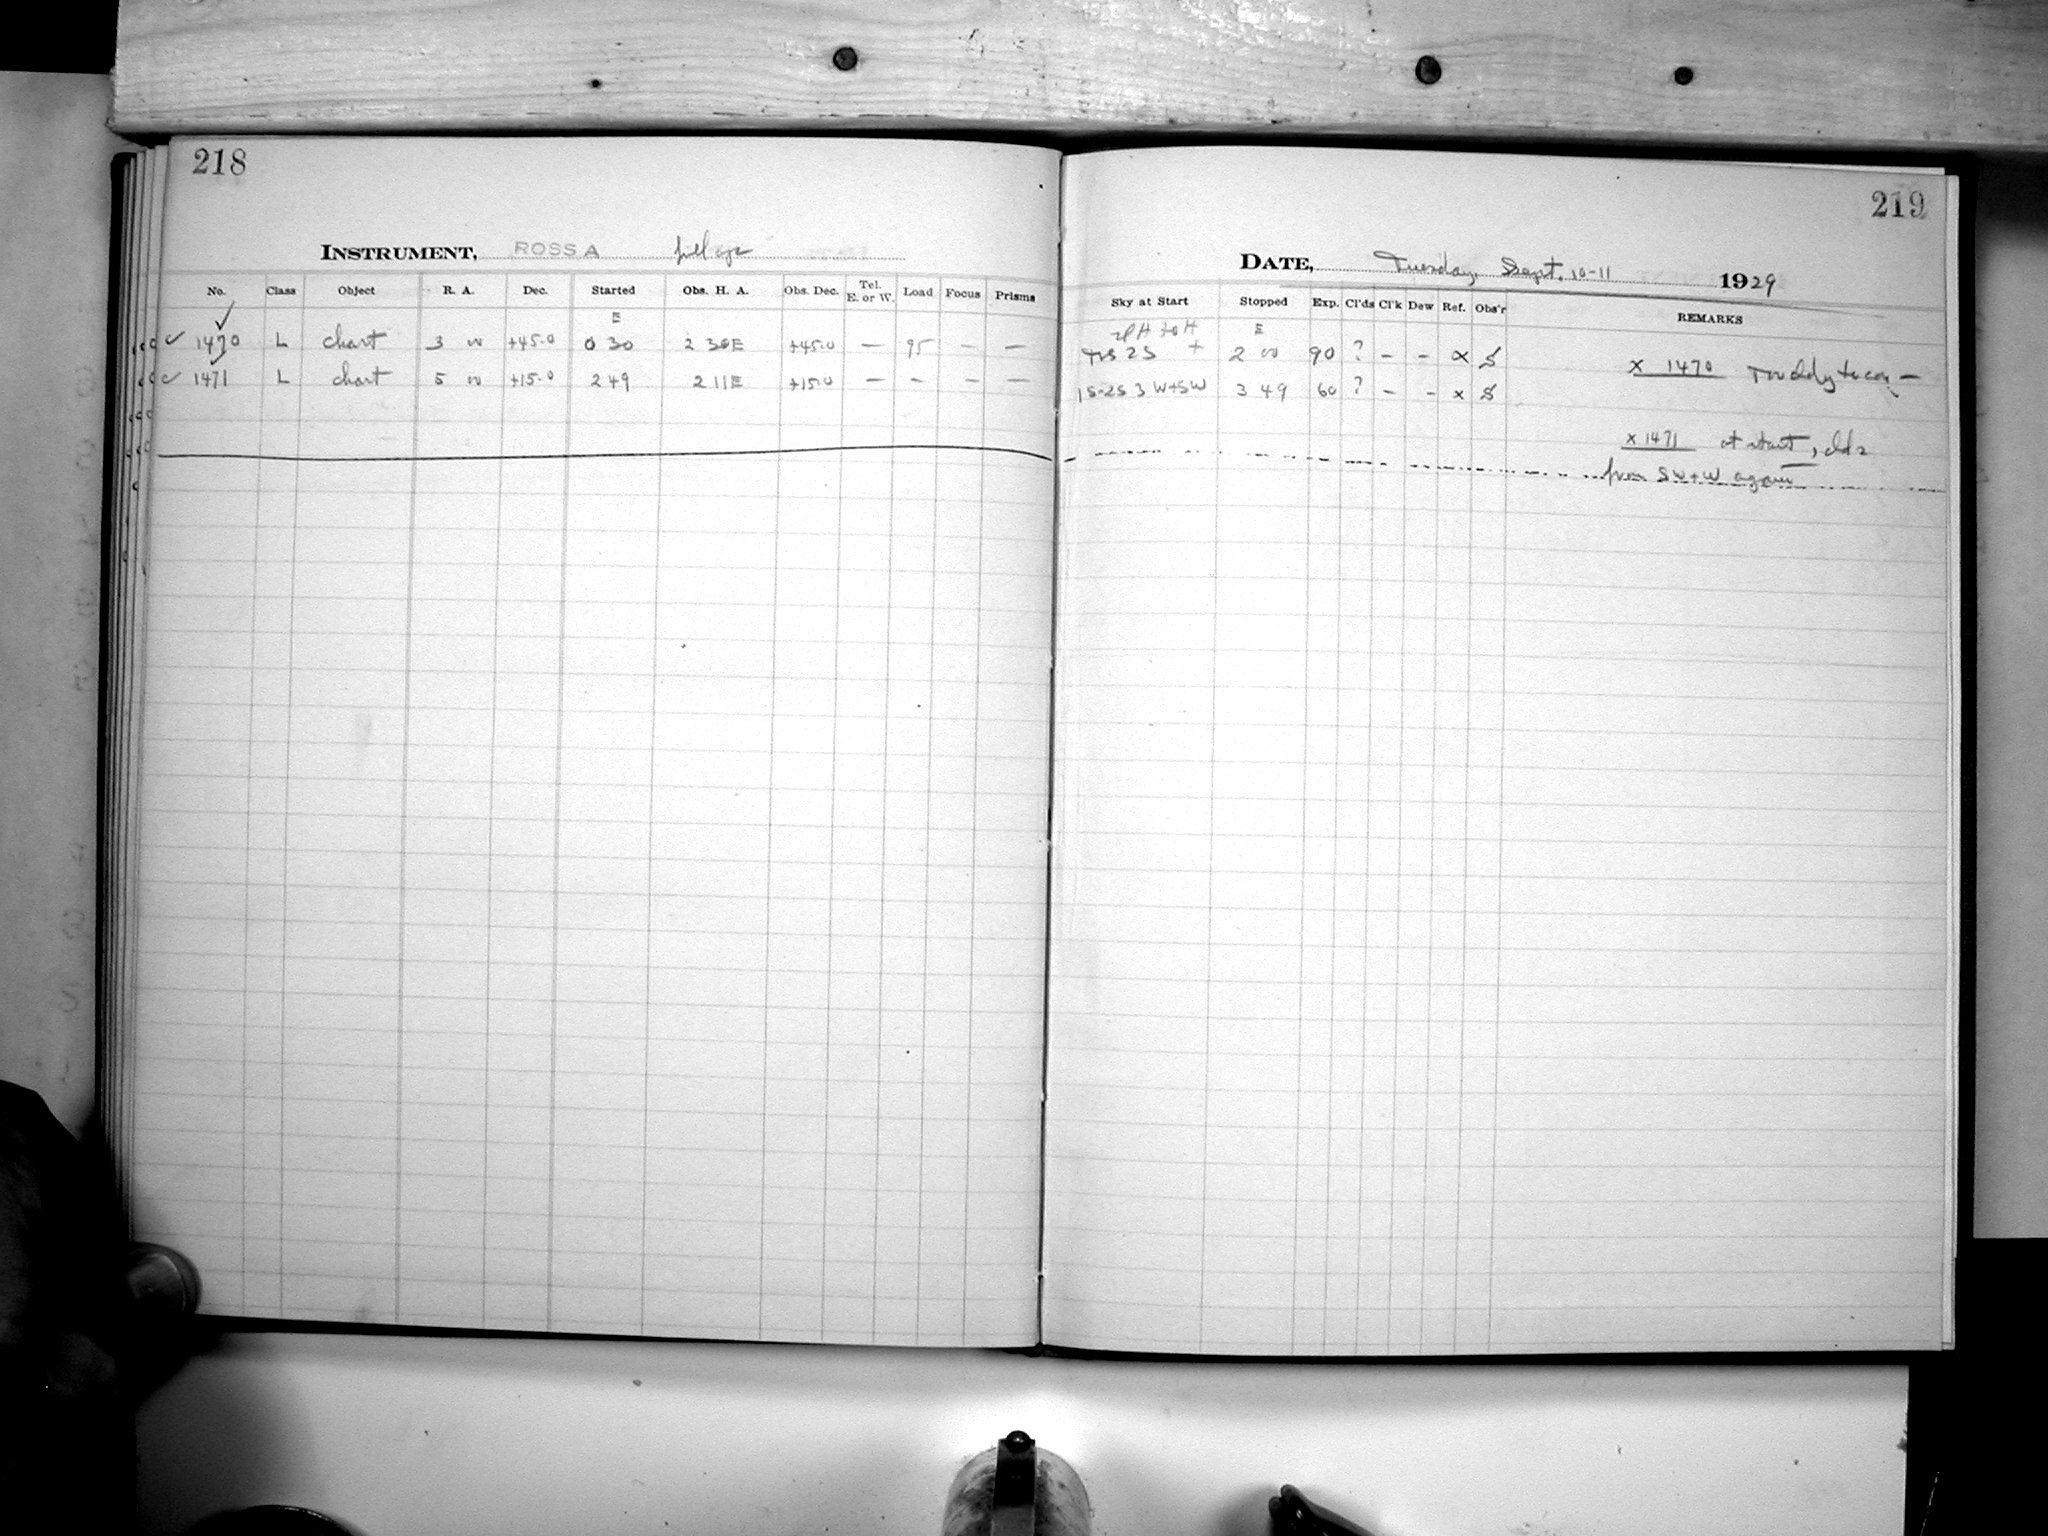 218
INSTRUMENT, ROSS A full ap.
No. Class Object R. A. Dec. Started Obs. H. A. Obs. Dec. Tel. E. or W. Load Focus Prisms
E
1470 L chart 3 00 +45.0 0 30 2 30E +45.0 — 95 — —
1471 L chart 5 00 +15.0 2 49 2 11E +15.0 — — — —
219
DATE, Tuesday, Sept. 10-11 1929
Sky at Start Stopped Exp. Cl'ds Cl'k Dew Ref. Obs'r REMARKS
E
2S + 2 00 90 ? - - x S x 1470
1S-2S 3 W+SW 3 49 60 ? - - x S
x 1471 at start, clds
from SW+W again